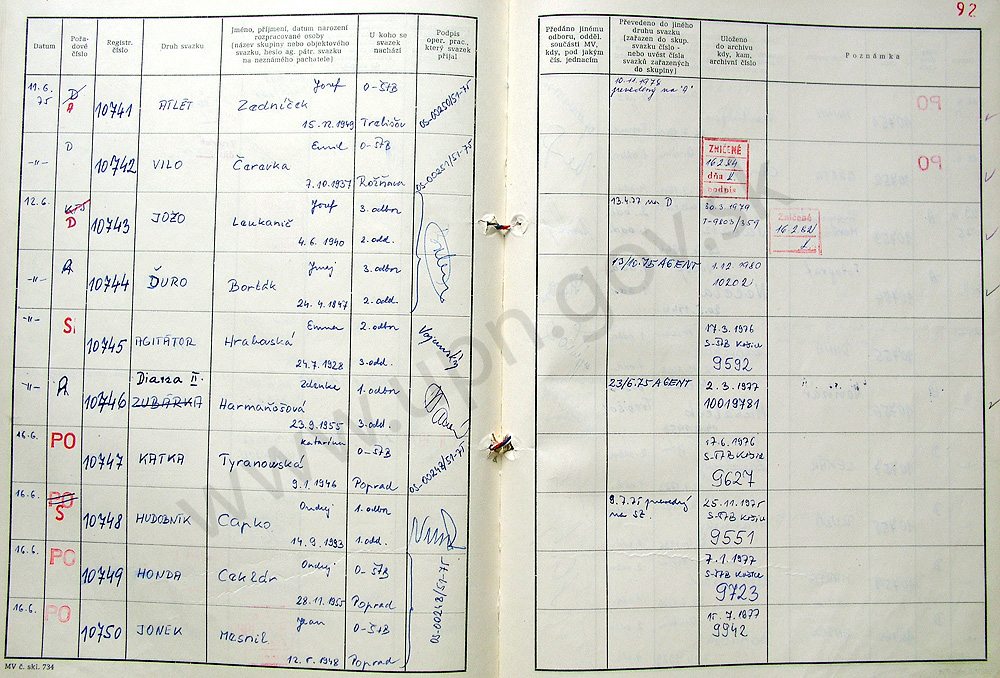 92
Datum
Pořadové číslo
Registr. číslo
Druh svazku
Jméno, příjmení, datum narození rozpracované osoby (název skupiny nebo objektového svazku, heslo ag. pátr. svazku na neznámého pachatele)
U koho se svazek nachází
Podpis oper. prac., který svazek přijal
Předáno jinému odboru, odděl. součásti MV, kdy, pod jakým čís. jednacím
Převedeno do jiného druhu svazku (zařazen do skup. svazku číslo - nebo uvést čísla svazků zařazených do skupiny)
Uloženo do archivu kdy, kam, archivní číslo
Poznámka
11.6. 75 D A 10741 ATLÉT Jozef Zedníček 15. 12. 1949 O-ŠTB Trebišov 03-00250/51-75 10.11.1979 prevedený na "A"
-"- D 10742 VILO Emil Čaravka 7.10.1937 O-ŠTB Rožňava 03-00251/51-75 ZNIČENÉ 16 2 84 dňa podpis
12.6. D 10743 JOŽO Jozef Leukanič 4.6.1940 3. odbor 2. odd. 13.4.77 na D 30.3.1979 T-9803/359 Zničené 16.2.82
-"- A 10744 ĎURO Juraj Borták 24.4.1897 3. odbor 2. odd. 19/10.75 AGENT 1.12.1980 10202
-"- S 10745 AGITÁTOR Emmer Hrabovská 24.7.1928 2. odbor 3. odd. 17.3.1976 S-ŠTB Košice 9592
-"- A 10746 Diana II. ZUBÁRKA Zdenka Harmaňošová 23.9.1955 1. odbor 3. odd. 23/6.75 AGENT 2.3.1977 10019781
16.6. PO 10747 KATKA Katarína Tyranowská 9.1.1946 O-ŠTB Poprad 03-00248/51-75 17.6.1976 S-ŠTB Košice 9627
16.6. PO S 10748 HUDOBNÍK Ondrej Capko 14.9.1993 1. odbor 1. odd. 9.7.75 prevedený na SZ. 25.11.1975 S-ŠTB Košice 9551
16.6. PO 10749 HONDA Ondrej Cehlár 28.11.1955 O-ŠTB Poprad 03-00248/51-75 7.1.1977 S-ŠTB Košice 9723
16.6. PO 10750 JONEK Jean Mesnil 12.5.1948 O-ŠTB Poprad 15.7.1977 9942
MV č. skl. 734
www.upn.gov.sk